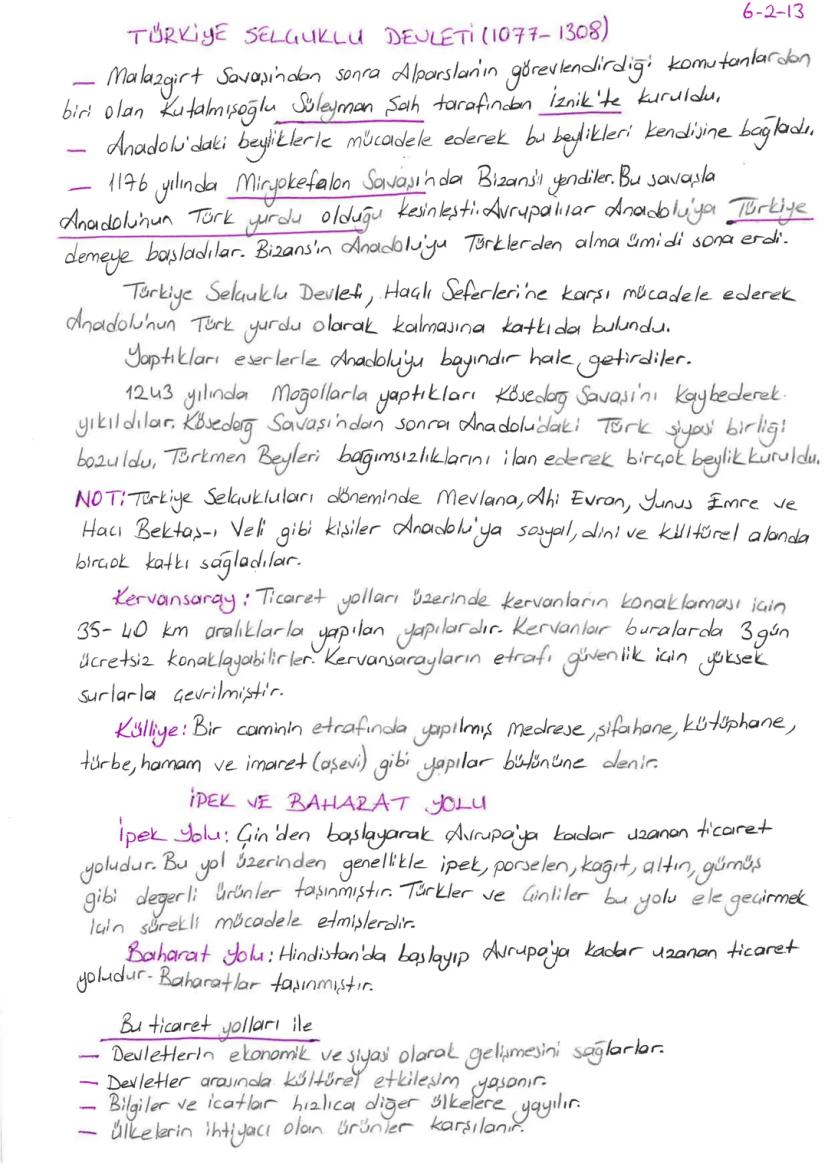 6-2-13
TÜRKİYE SELÇUKLU DEVLETİ (1077-1308)
— Malazgirt Savaşından sonra Alparslan'ın görevlendirdiği komutanlardan
biri olan Kutalmışoğlu Süleyman Şah tarafından İznik'te kuruldu.
— Anadolu'daki beyliklerle mücadele ederek bu beylikleri kendisine bağladı.
— 1176 yılında Miryokefalon Savaşı'nda Bizans'ı yendiler. Bu savaşla
Anadolu'nun Türk yurdu olduğu kesinleşti. Avrupalılar Anadolu'ya Türkiye
demeye başladılar. Bizans'ın Anadolu'yu Türklerden alma ümidi sona erdi.
Türkiye Selçuklu Devleti, Haçlı Seferleri'ne karşı mücadele ederek
Anadolu'nun Türk yurdu olarak kalmasına katkıda bulundu.
Yaptıkları eserlerle Anadolu'yu bayındır hale getirdiler.
1243 yılında Moğollarla yaptıkları Kösedağ Savaşı'nı kaybederek
yıkıldılar. Kösedağ Savaşı'ndan sonra Anadolu'daki Türk siyasi birliği
bozuldu, Türkmen Beyleri bağımsızlıklarını ilan ederek birçok beylik kuruldu.
NOT: Türkiye Selçukluları döneminde Mevlana, Ahi Evran, Yunus Emre ve
Hacı Bektaş-ı Veli gibi kişiler Anadolu'ya sosyal, dini ve kültürel alanda
birçok katkı sağladılar.
Kervansaray: Ticaret yolları üzerinde kervanların konaklaması için
35-40 km aralıklarla yapılan yapılardır. Kervanlar buralarda 3 gün
ücretsiz konaklayabilirler. Kervansarayların etrafı güvenlik için yüksek
surlarla çevrilmiştir.
Külliye: Bir caminin etrafında yapılmış medrese, şifahane, kütüphane,
türbe, hamam ve imaret (aşevi) gibi yapılar bütününe denir.
İPEK VE BAHARAT YOLU
İpek Yolu: Çin'den başlayarak Avrupa'ya kadar uzanan ticaret
yoludur. Bu yol üzerinden genellikle ipek, porselen, kağıt, altın, gümüş
gibi değerli ürünler taşınmıştır. Türkler ve Çinliler bu yolu ele geçirmek
için sürekli mücadele etmişlerdir.
Baharat Yolu: Hindistan'da başlayıp Avrupa'ya kadar uzanan ticaret
yoludur. Baharatlar taşınmıştır.
Bu ticaret yolları ile
— Devletlerin ekonomik ve siyasi olarak gelişmesini sağlarlar.
— Devletler arasında kültürel etkileşim yaşanır.
— Bilgiler ve icatlar hızlıca diğer ülkelere yayılır.
— Ülkelerin ihtiyacı olan ürünler karşılanır.